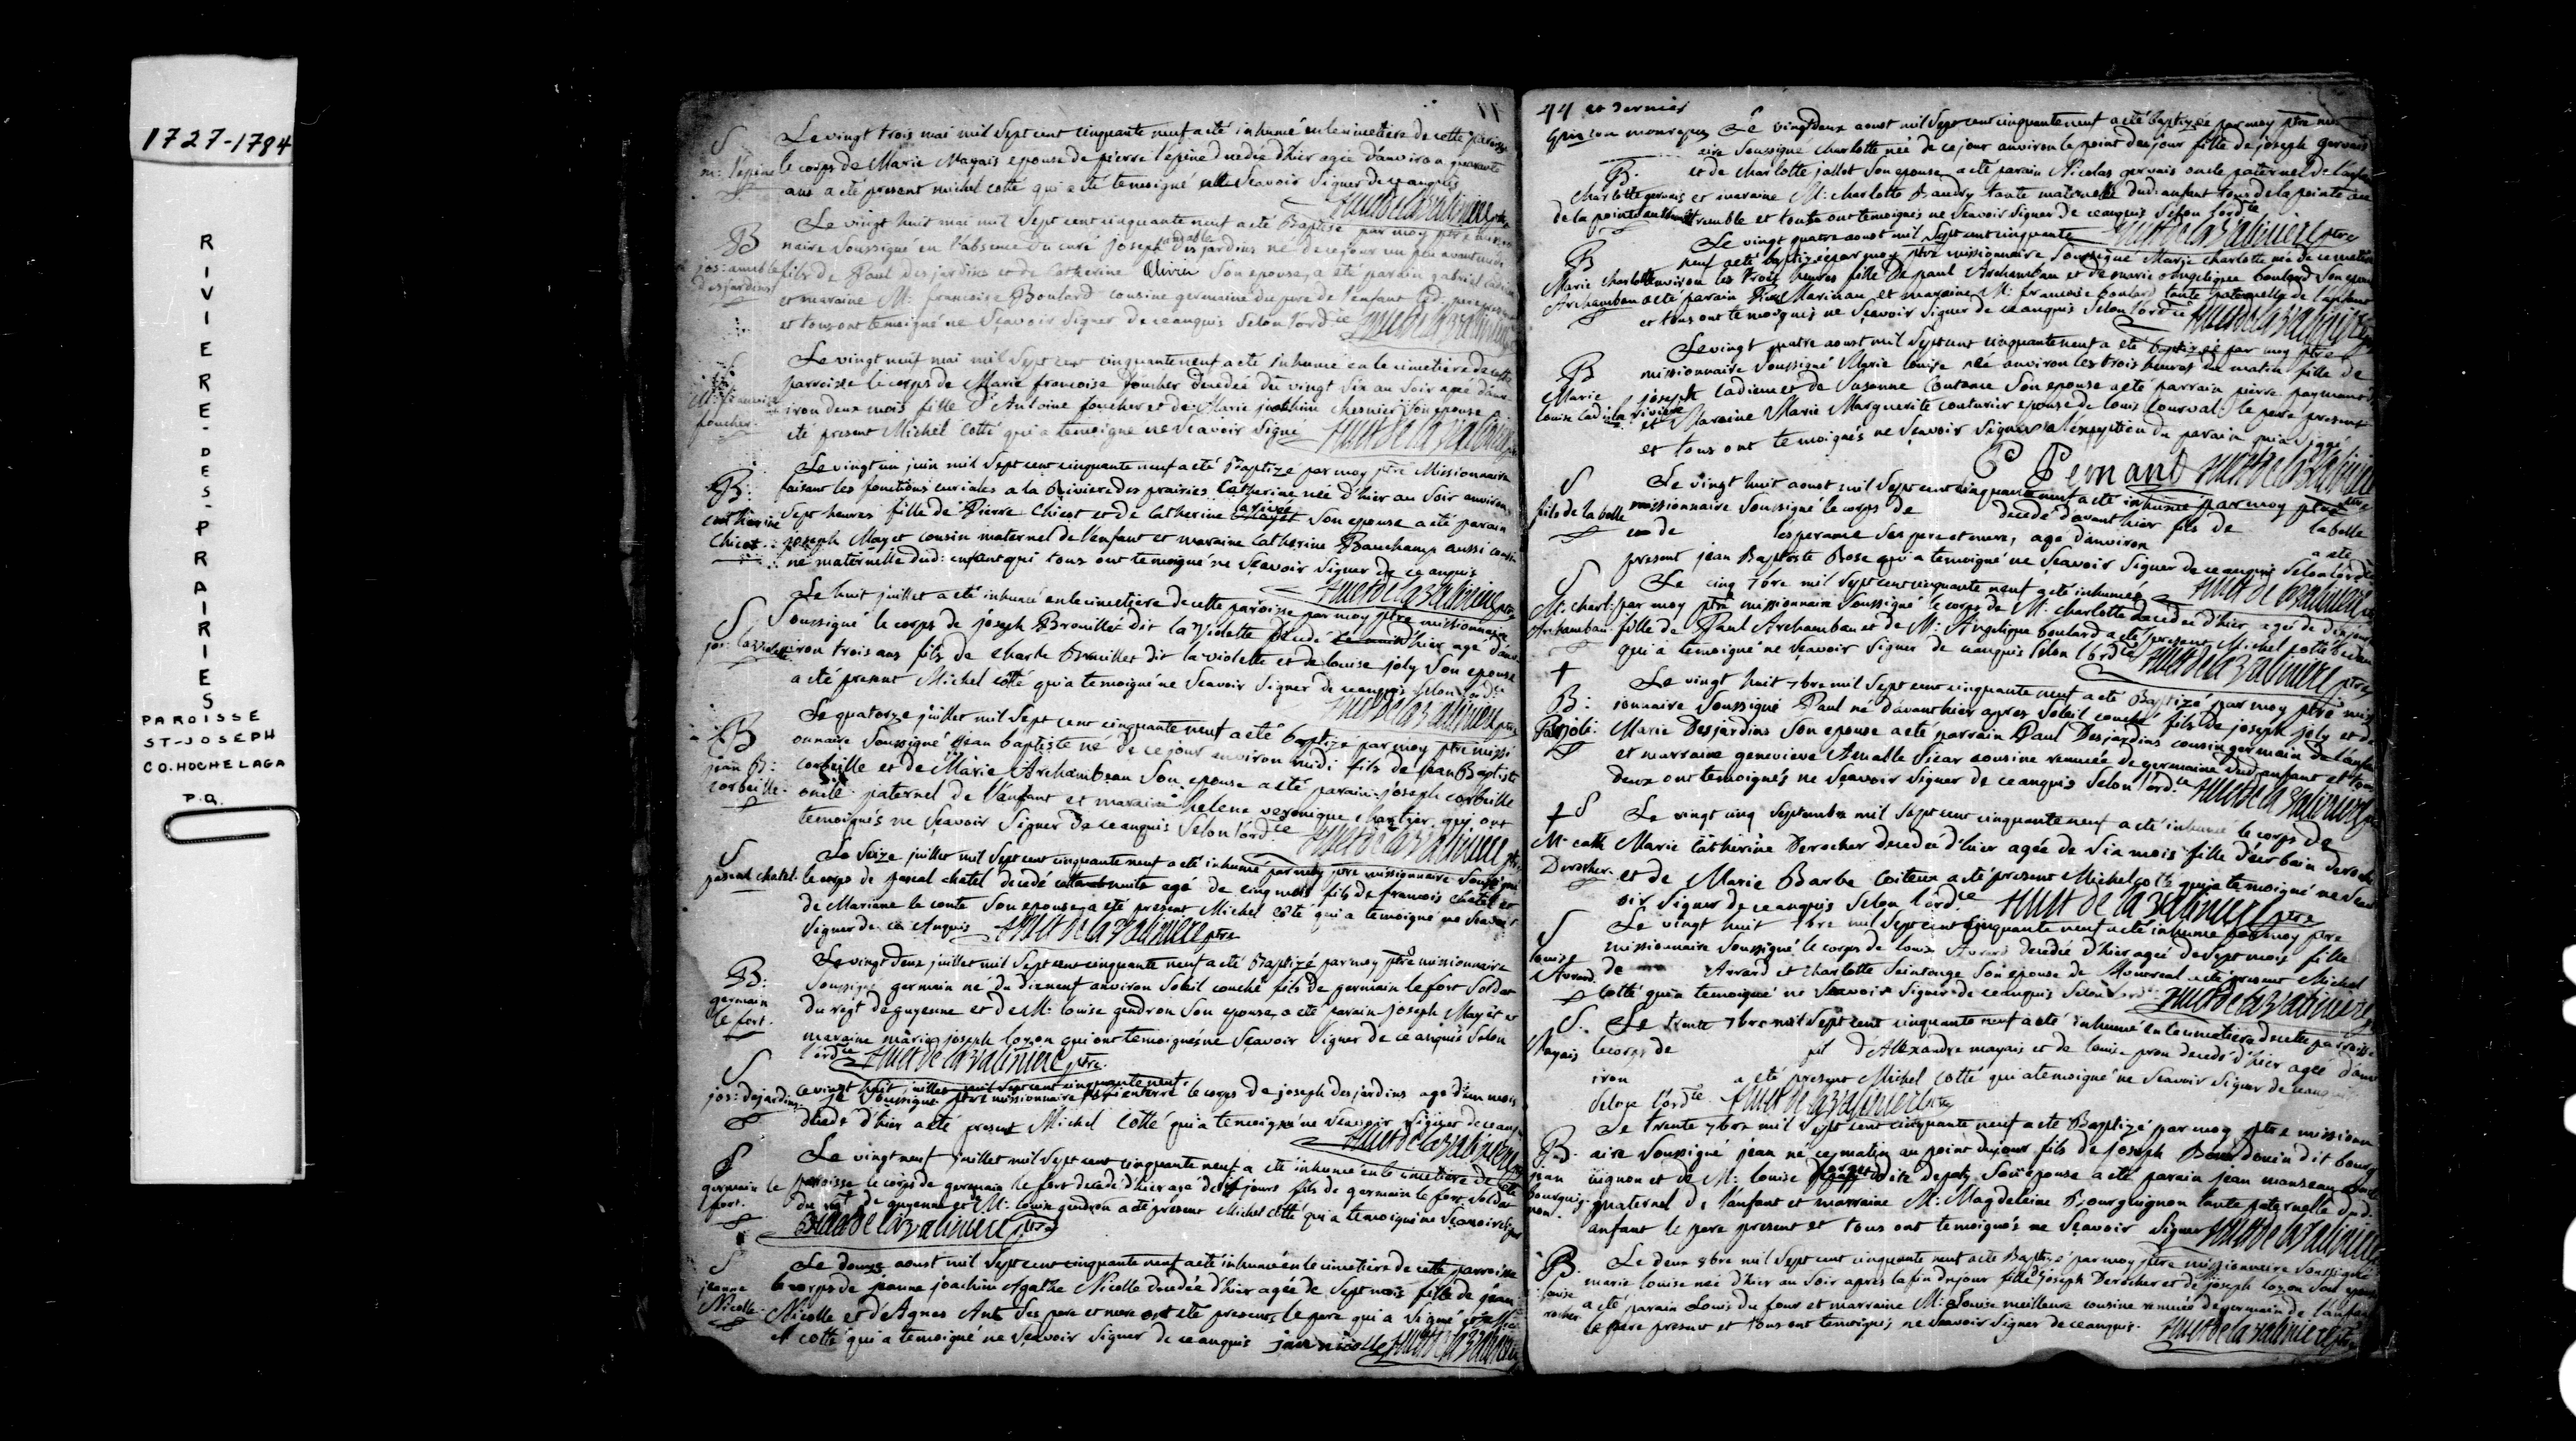 1727-1784
RIVIERE-DES-PRAIRIES
PAROISSE
ST-JOSEPH
CO. HOCHELAGA
P.Q.
S
m: l'épine
Le vingt trois mai mil sept cent cinquante neuf a eté inhumé en le cimetiere de cette paroisse
le corps de Marie Magais epouse de pierre l'epine decedée d'hier agée d'anviron quarante
ans a eté present michel cotté qui a eté temoigné ne Sçavoir Signer de ce anquis
huet de la valiniere ptre
B
jos: amable
desjardins
Le vingt huit mai mil Sept cent cinquante neuf a eté Baptisé par moy ptre missio
naire Soussigné en l'absence du curé joseph amable desjardins né de ce jour un peu avant midi
fils de Paul desjardins et de Catherine Olivier Son epouse, a été parain gabriel cadieu
et maraine M: francoise Boulard cousine germaine du pere de l'enfant led: pere present
et tous ont temoigné ne Sçavoir Signer de ce anquis Selon l'ord.ce huet de la valiniere
S
M: francoise
foucher
Le vingt neuf mai mil Sept cent cinquante neuf a eté inhumé en le cimetiere de cette
parroisse le corps de Marie francoise foucher decedée du vingt Six au Soir agé d'anv
iron deux mois fille d'Antoine foucher et de Marie joachim chesnier Son epouse
eté present Michel Cotté qui a temoigné ne Sçavoir Signé huet de la valiniere ptre
B:
catherine
Chicot
Le vingt un juin mil Sept cent cinquante neuf a eté Baptizé par moy ptre Missionnaire
faisant les fonctions curiales a la Riviere des prairies Catherine née d'hier au Soir anviron
Sept heures fille de Pierre Chicot et de Catherine Son epouse a eté parain
joseph Mayet cousin maternel de l'enfant et maraine Catherine Bauchamp aussi cousi
ne maternelle dud: enfant qui tous ont temoigné ne Sçavoir Signer de ce anquis
huet de la valiniere ptre
S
jos: la violette
Le huit juillet a eté inhumé en le cimetiere de cette paroisse par moy ptre missionnaire
Soussigné le corps de joseph Brouillet dit la Violette decedé d'hier agé d'anv
iron trois ans fils de charle Brouillet dit la violette et de louise joly Son epouse
a eté present Michel cotté qui a temoigné ne Sçavoir Signer de ce anquis Selon l'ord.ce
huet de la valiniere ptre
B
jean B:
corbeille
Le quatorze juillet mil Sept cent cinquante neuf a eté baptizé par moy ptre missi
onnaire Soussigné jean baptiste né de ce jour environ midi fils de jean Baptiste
corbeille et de Marie Archambeau Son epouse a eté parain joseph corbeille
oncle paternel de l'enfant et maraine helene veronique chartier qui ont
temoignés ne Sçavoir Signer de ce anquis Selon l'ord.ce huet de la valiniere ptre
S
pascal chatel
Le Seize juillet mil Sept cent cinquante neuf a eté inhumé par moy ptre missionnaire Soussigné
le corps de pascal chatel decedé cette nuit agé de cinq mois fils de francois chatel et
de Mariane le conte Son epouse, a eté present Michel Cotté qui a temoigné ne Sçavoir
Signer de ce Anquis huet de la valiniere ptre
B:
germain
le fort
Le vingt deux juillet mil Sept cent cinquante neuf a eté Baptizé par moy ptre missionnaire
Soussigné germain né du dix neuf anviron Soleil couché fils de germain le fort Soldat
du regt de guyenne et de M: louise gendron Son epouse, a eté parain joseph Mayet et
maraine marie joseph lozon qui ont temoignés ne Sçavoir Signer de ce anquis Selon
l'ord.ce huet de la valiniere ptre
S
jos: dejardins
Le vingt huit juillet mil sept cent cinquante neuf
je Soussigné ptre missionnaire ay enterré le corps de joseph desjardins agé d'un mois
decedé d'hier a eté present Michel Cotté qui a temoigné ne Sçavoir Signer de ce anquis
huet de la valiniere
S
germain le
fort
Le vingt neuf juillet mil Sept cent cinquante neuf a eté inhumé en le cimetiere de cette
paroisse le corps de germain le fort decedé d'hier agé de jours fils de germain le fort Soldat
du regt de guyenne et de M: louise gendron a eté present Michel Cotté qui a temoigné ne Sçavoir Signer
huet de la valiniere ptre
S
jeanne
Nicolle
Le douze aoust mil Sept cent cinquante neuf a eté inhumé en le cimetiere de cette parroisse
le corps de jeanne joachim Agathe Nicolle decedée d'hier agée de Sept mois fille de jean
Nicolle et d'Agnes Ant Ses pere et mere ont eté presents le pere qui a Signé et Michel
cotté qui a temoigné ne Sçavoir Signer de ce anquis jean nicolle huet de la valiniere
44 et dernier
B.
Charlotte gervais
de la pointe au tremble
Le vingt deux aoust mil Sept cent cinquante neuf a eté baptizée par moy ptre missio
naire Soussigné Charlotte née de ce jour anviron le point du jour fille de joseph gervais
et de Charlotte jallot Son epouse a eté parain Nicolas gervais oncle paternel de l'enfan
et maraine M: charlotte Baudry tante maternelle dud: anfant tous de la pointe au
tremble et tous ont temoignés ne Sçavoir Signer de ce anquis Selon l'ord.ce
huet de la valiniere ptre
B
Marie Charlotte
Archambau
Le vingt quatre aoust mil Sept cent cinquante
neuf a eté baptizée par moy ptre missionnaire Soussigné Marie charlotte née de ce matin
environ les trois heures fille de paul Archambau et de marie Angelique boulard Son epouse
a eté parain Marinau et maraine M: francoise boulard tante paternelle de l'anfant
et tous ont temoignés ne Sçavoir Signer de ce anquis Selon l'ord.ce huet de la valiniere
B
Marie
louise Cadieu
la riviere
Le vingt quatre aoust mil Sept cent cinquante neuf a eté baptizée par moy ptre
missionaire Soussigné Marie louise née anviron les trois heures du matin fille de
joseph Cadieu et de Susanne Coutance Son epouse a eté parrain pierre paymant
et Maraine Marie Marguerite couturier epouse de louis tourval: le pere present
et tous ont temoignés ne Sçavoir Signer a l'exception du parain qui a Signé
huet de la valiniere
S
fils de la belle
Le vingt huit aoust mil Sept cent cinquante neuf a eté inhumé par moy ptre
missionnaire Soussigné le corps de decedé d'avant hier fils de labelle
et de l'esperance Ses pere et mere, agé d'anviron a eté
present jean Baptiste Rose qui a temoigné ne Sçavoir Signer de ce anquis Selon l'ord.ce
huet de la valiniere
S
M: charl:
Archambau
Le cinq 7bre mil Sept cent cinquante neuf a eté inhumée
par moy ptre missionnaire Soussigné le corps de M: charlotte decedée d'hier agée de dix jours
fille de Paul Archambau et de M: Angelique boulard a eté present Michel cotté bedau
qui a temoigné ne Sçavoir Signer de ce anquis Selon l'ord.ce huet de la valiniere ptre
†
B:
Paul joli:
Le vingt huit 7bre mil Sept cent cinquante neuf a eté Baptizé par moy ptre miss
ionnaire Soussigné Paul né d'avant hier apres Soleil couché fils de joseph joly et de
Marie Desjardins Son epouse a eté parrain Paul Desjardins cousin germain de l'anfan
et marraine genevieve Amable Sicar cousine remuée de germaine dud: anfant et tous
deux ont temoignés ne Sçavoir Signer de ce anquis Selon l'ord.ce huet de la valiniere
† S
M: cath
Derocher
Le vingt cinq Septembre mil Sept cent cinquante neuf a eté inhumé le corps de
Marie Catherine Derocher decedée d'hier agée de Six mois fille d'urbain deroch
et de Marie Barbe Coiteux a eté present Michel cotté qui a temoigné ne Sçav
oir Signer de ce anquis Selon l'ord.ce huet de la valiniere ptre
S
louise
Avrard
Le vingt huit 7bre mil Sept cent cinquante neuf a eté inhumé par moy ptre
missionnaire Soussigné le corps de louise Avrard decedée d'hier agée de Sept mois fille
de Avrard et charlotte Seintonge Son epouse de Montreal a eté present Michel
Cotté qui a temoigné ne Sçavoir Signer de ce anquis Selon l'ord.ce huet de la valiniere
S.
Magais
Le trente 7bre mil Sept cent cinquante neuf a eté inhumé en le cimetiere de cette paroisse
le corps de fil d'Alexandre magais et de louise prou decedé d'hier agé d'anv
iron a eté present Michel Cotté qui a temoigné ne Sçavoir Signer de ce anquis
Selon l'ord.ce huet de la valiniere ptre
B
jean
bourguig-
non
Le trente 7bre mil Sept cent cinquante neuf a eté Baptizé par moy ptre mission
aire Soussigné jean né ce matin au point du jour fils de joseph Beaudouin dit bourg
uignon et de M: louise forget dite depaty Son epouse a eté parain jean manseau oncle
maternel de l'anfant et marraine M: Magdeleine Bourguignon tante paternelle dud.
anfant le pere present et tous ont temoignés ne Sçavoir Signer huet de la valiniere
B
louise
rocher
Le deux 8bre mil Sept cent cinquante neuf a eté Baptizé par moy ptre missionnaire Soussigné
marie louise née d'hier au Soir apres la fin du jour fille joseph Derocher et de joseph lozon Son epouse
a eté parain Louis Du four et marraine M: Louise meilleure cousine remuée de germain de l'anfan
le pere present et tous ont temoignés ne Sçavoir Signer de ce anquis. huet de la valiniere ptre